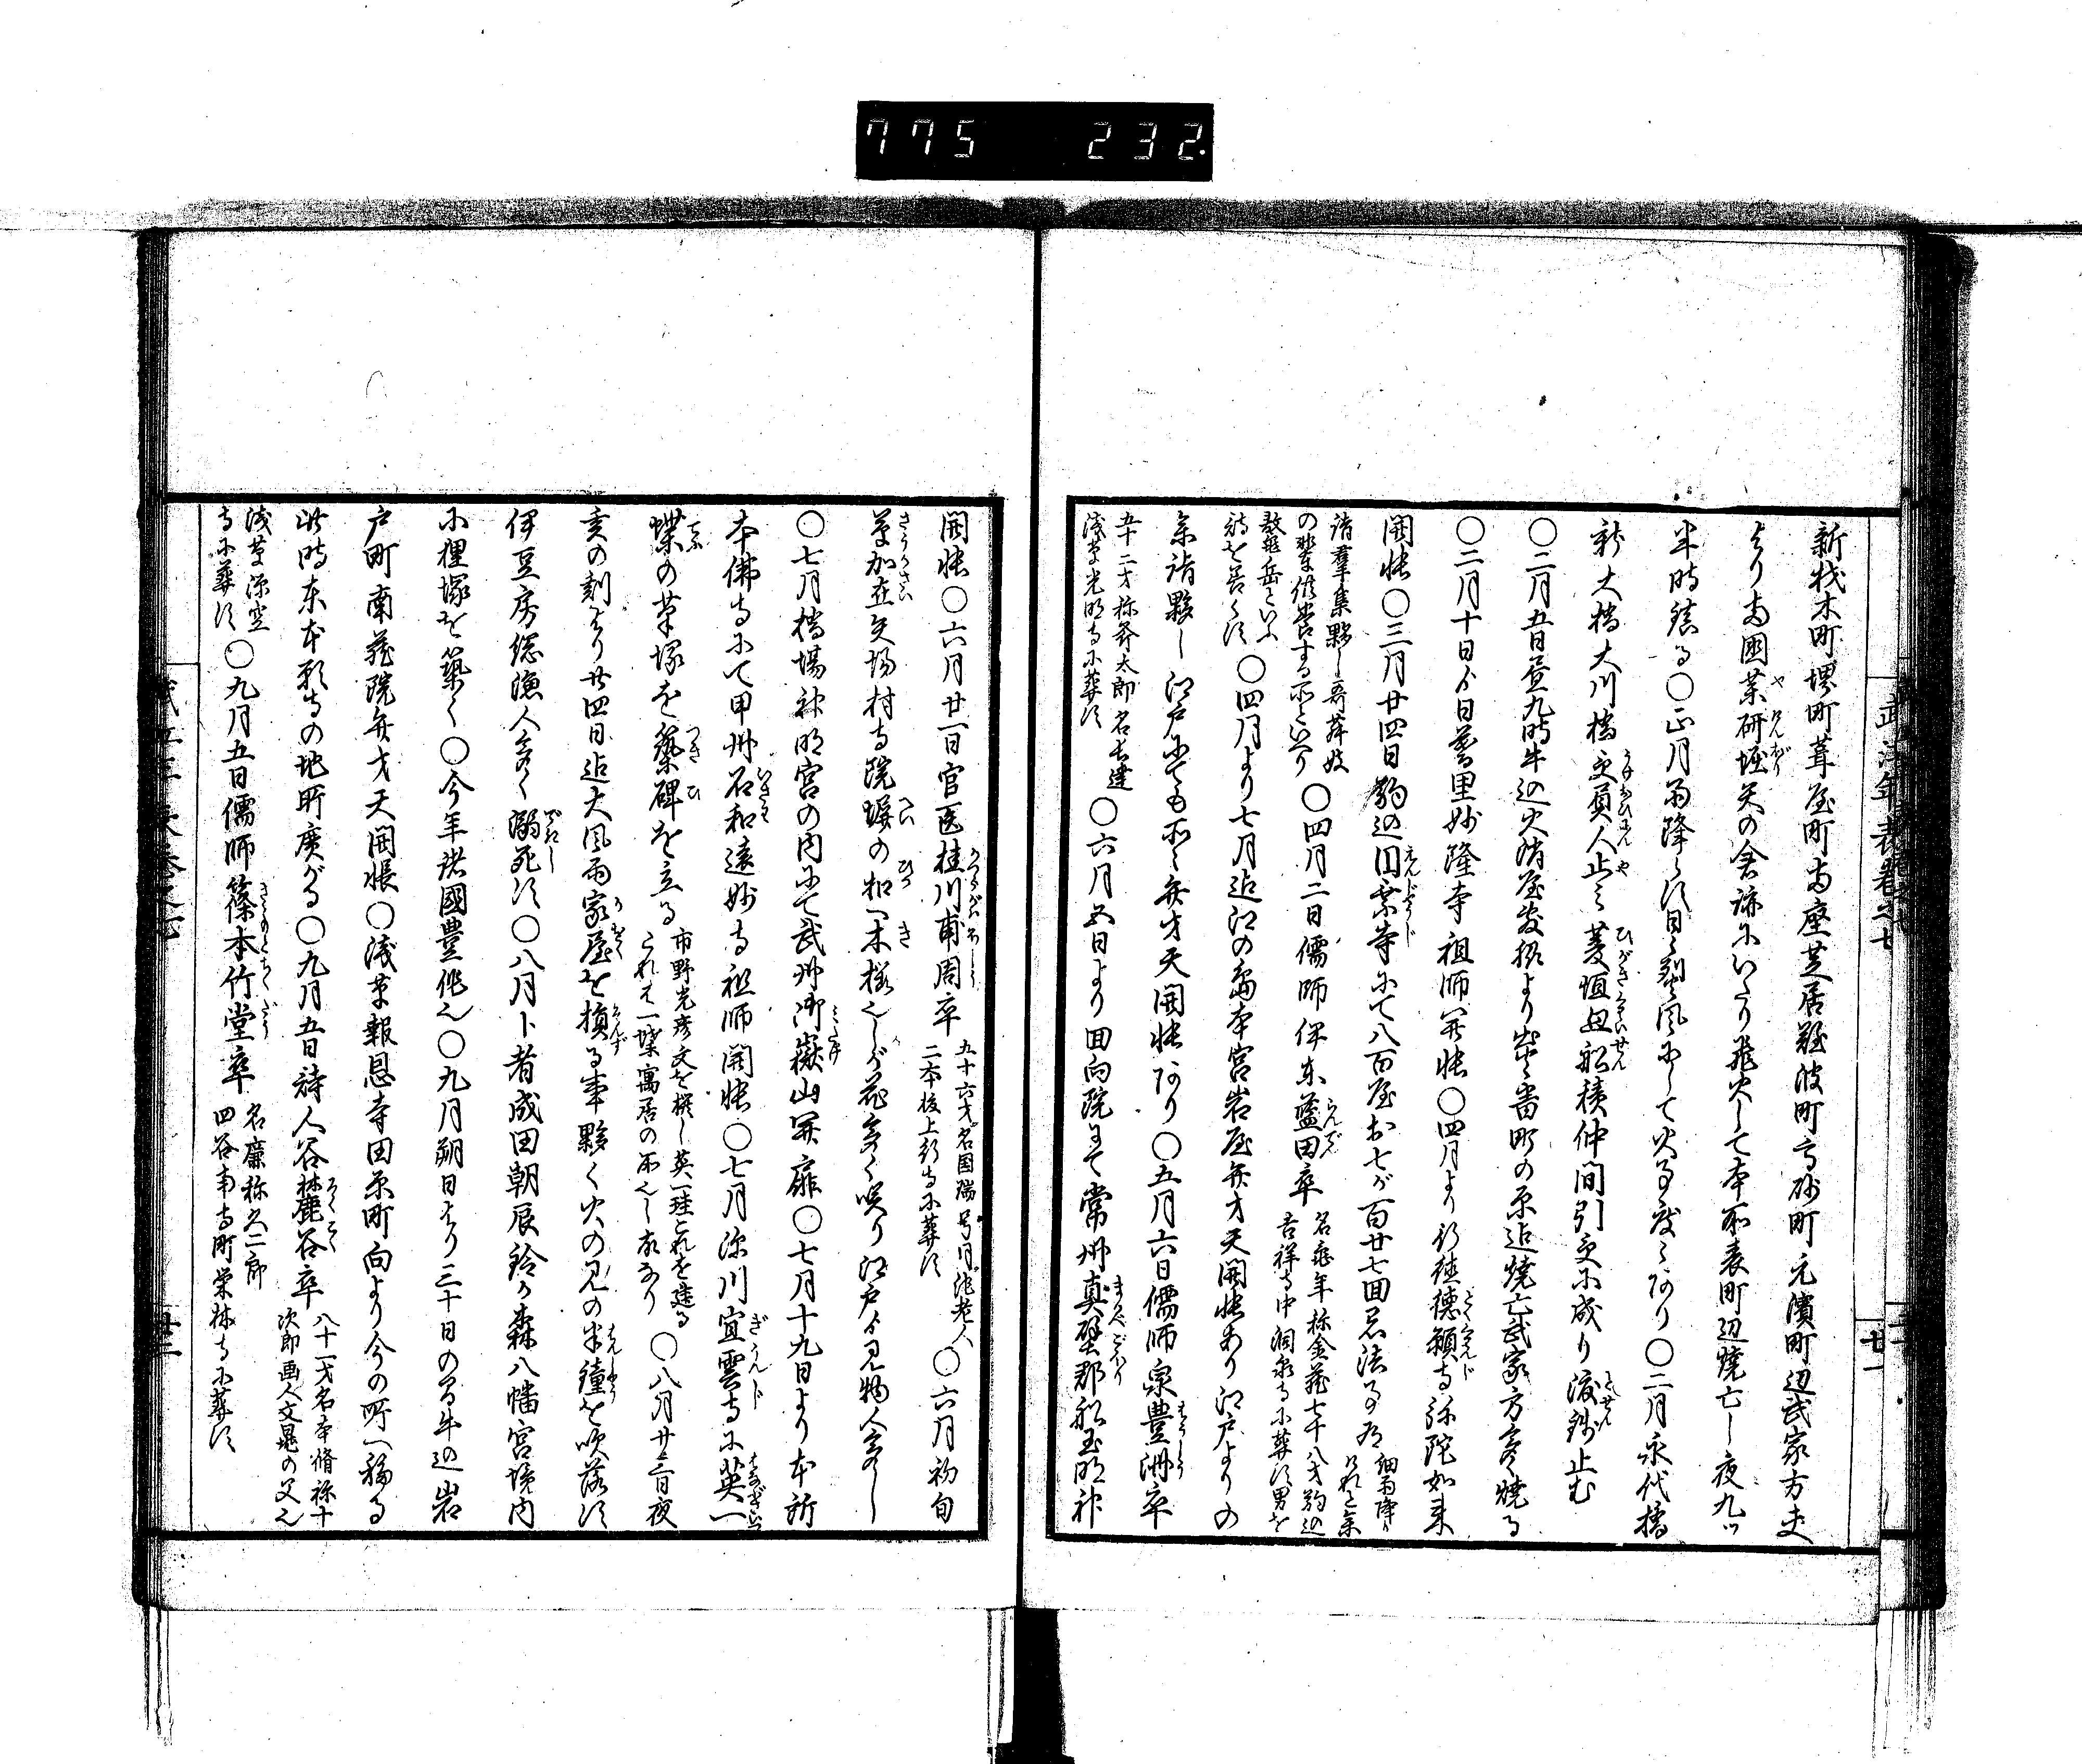 775 232
武江年表巻之七
廿一
新材木町堺町葺屋町両座芝居難波町高砂町元濱町辺武家方夫
より両國薬研堀矢の倉跡にいたり飛火して本所表町辺焼亡し夜九ツ
半時鎮る〇正月雨降らす日々烈風にして火る度々あり〇二月永代橋
新大橋大川橋受負人止ミ菱垣廻船積仲間引受に成り渡銭止む
〇二月五日昼九時牛込火消屋敷脇より出火番町の原迄焼亡武家方多く焼る
〇二月十日ゟ日暮里妙隆寺祖師開帳〇四月より行徳徳願寺弥陀如来
開帳〇三月廿四日駒込圓乗寺にて八百屋お七が百廿七回忌法事有
細雨降りけれど参
詣羣集夥し哥舞妓
の輩供養する所といへり
〇四月二日儒師伊東藍田卒
名亀年称金蔵七十八才駒込
吉祥寺中洞泉寺に葬す男を
〇四月より七月迄江の島本宮岩屋弁才天開帳あり江戸よりの
参詣夥し江戸にても所々弁才天開帳あり〇五月六日儒師泉豊洲卒
五十二才称斧太郎名長達
浅草光明寺に葬す
〇六月五日より回向院にて常州真壁郡船玉明神
開帳〇六月廿一日官医桂川甫周卒
五十六才名国瑞号月池老人
二本榎上行寺に葬す
〇六月初旬
草加在矢場村寺院
木槿也しが花多く咲り江戸ゟ見物人多し
〇七月橋場神明宮の内にて武州御嶽山開扉〇七月十九日より本所
本佛寺にて甲州石和遠妙寺祖師開帳〇七月深川宜雲寺に英一
蝶の草塚を築碑を立る
市野光彦文を撰し英一珪これを建る
これは一蝶寓居の所也し故なり
〇八月廿三日夜
亥の刻より廿四日迄大風雨家屋を損る事夥く火の見の半鐘を吹落す
伊豆房総漁人多く溺死す〇八月卜者成田朝辰鈴か森八幡宮境内
に狸塚を築く〇今年諸國豊作也〇九月朔日より三十日の間牛込岩
戸町南蔵院弁才天開帳〇浅草報恩寺田原町向より今の所へ移る
此時東本願寺の地所廣がる〇九月五日詩人谷麓谷卒
八十一才名本脩称十
次郎画人文晁の父也
浅草源空
寺に葬す
〇九月五日儒師篠本竹堂卒
名廉称久二郎
四谷南寺町栄林寺に葬す